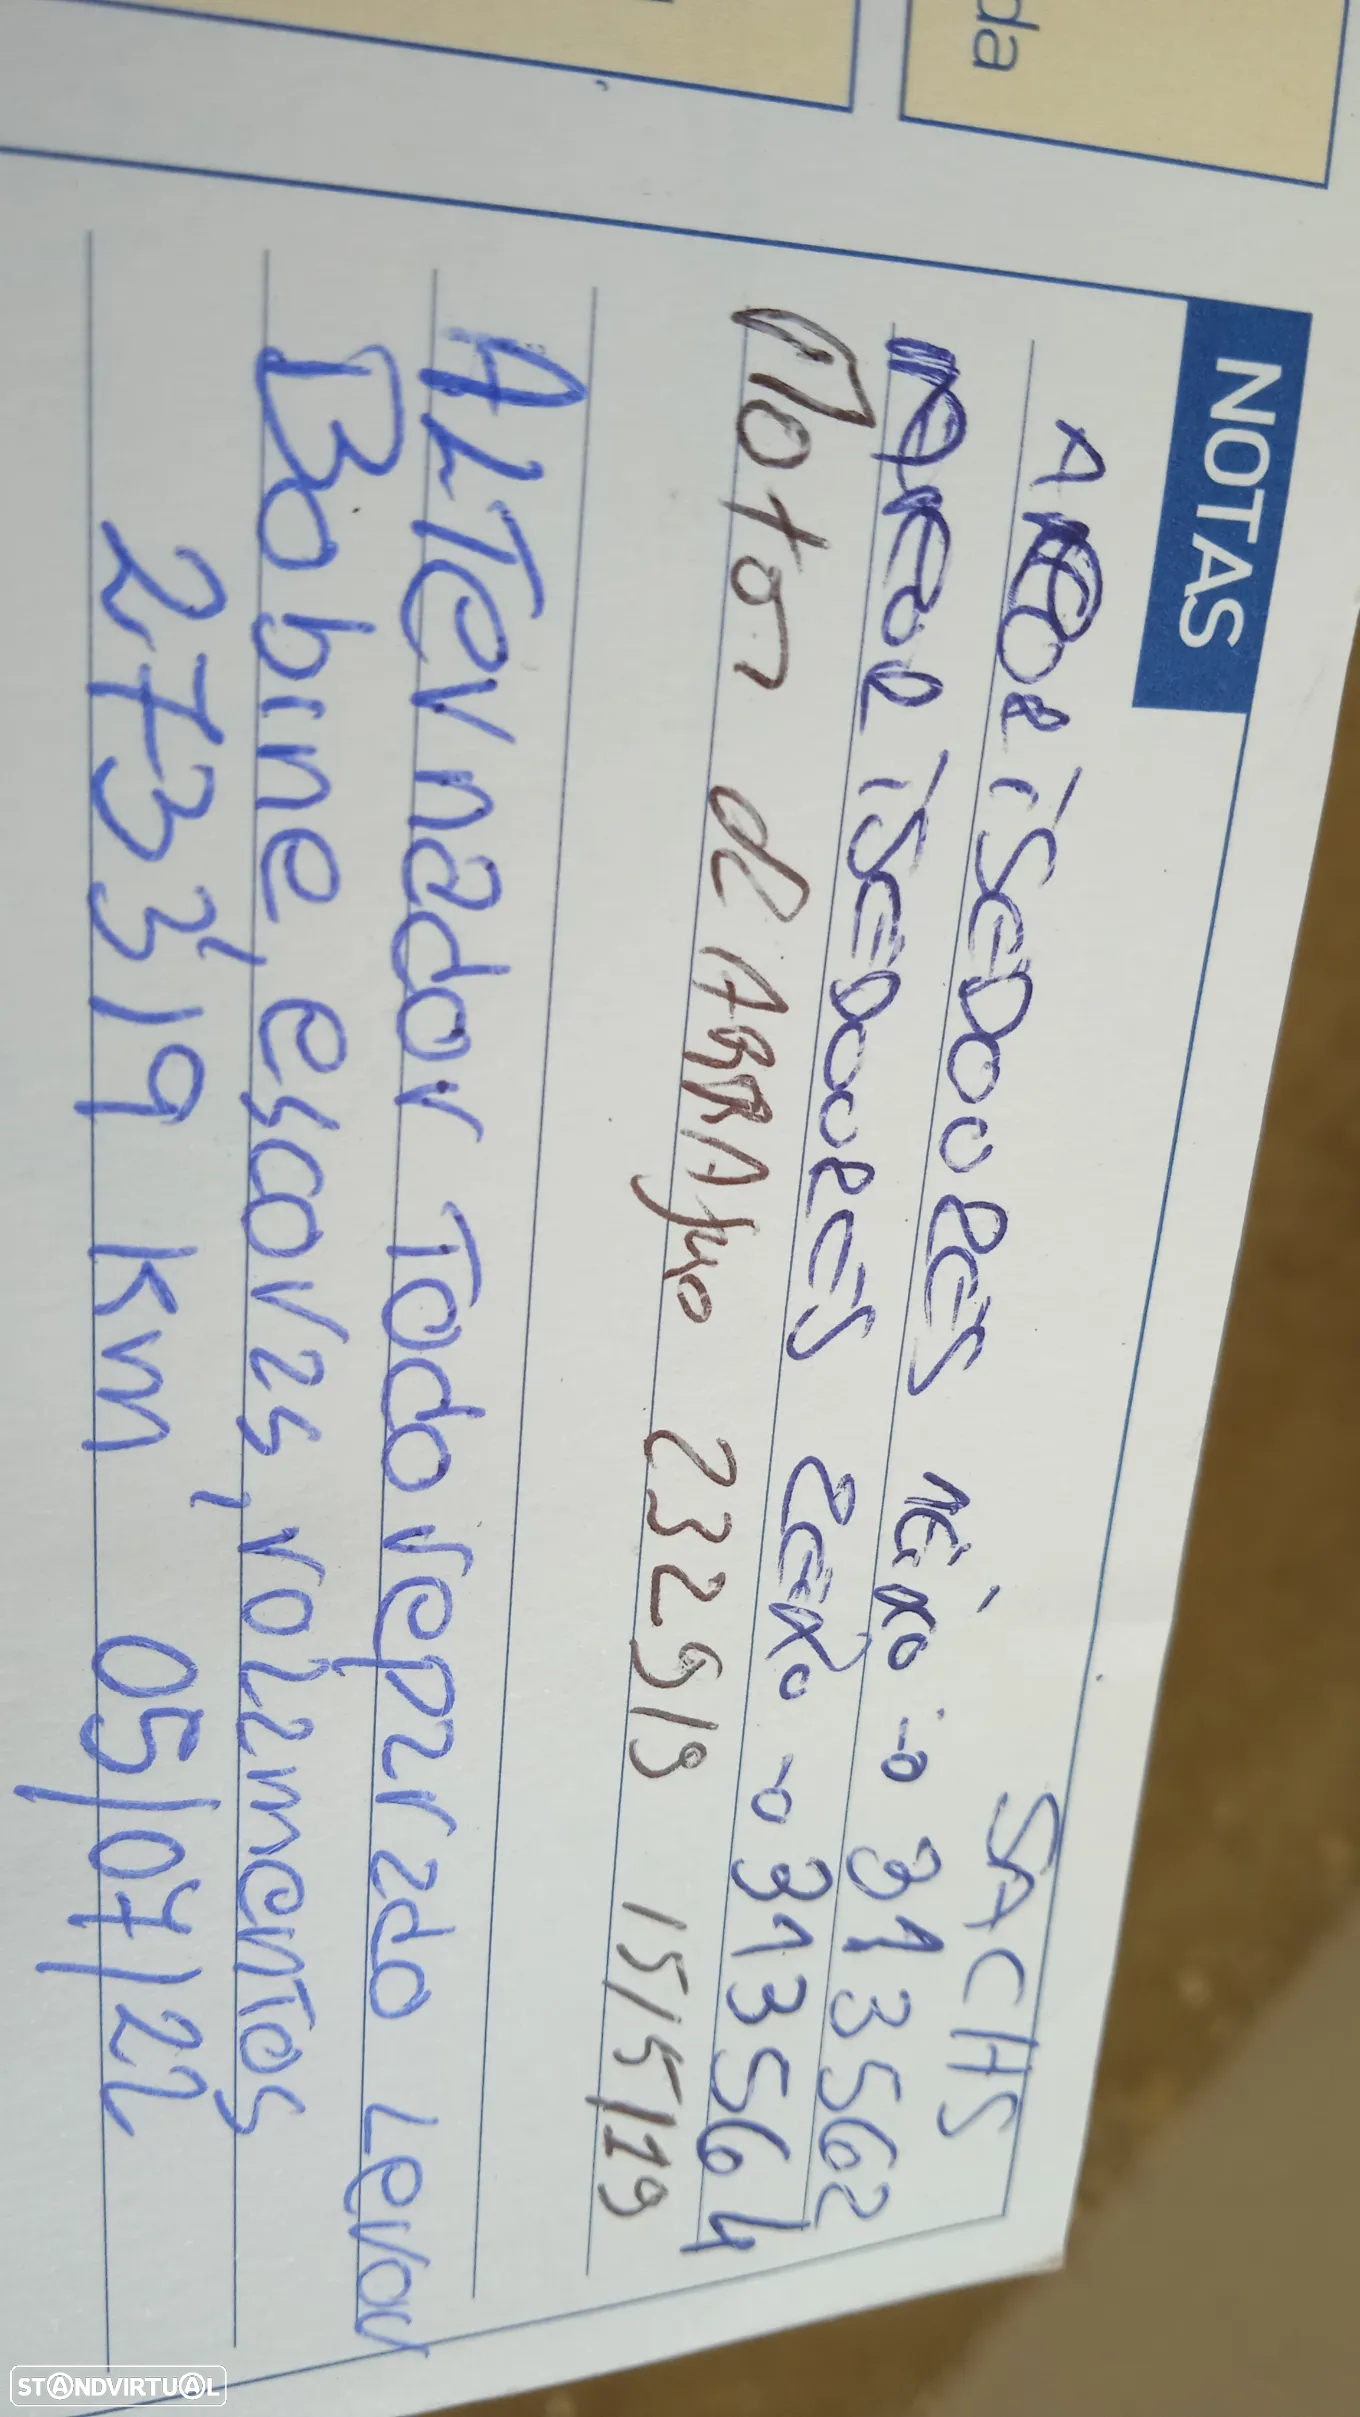 da
NOTAS
SACHS
AMORTISEDORES → 313562
AMORTISEDORES → 313564
Motor de ARRANque 232513 15/5/19
ALTernador Todo reparado Levou
Bobine, escovas, rolamentos
273319 km 05/07/22
STANDVIRTUAL